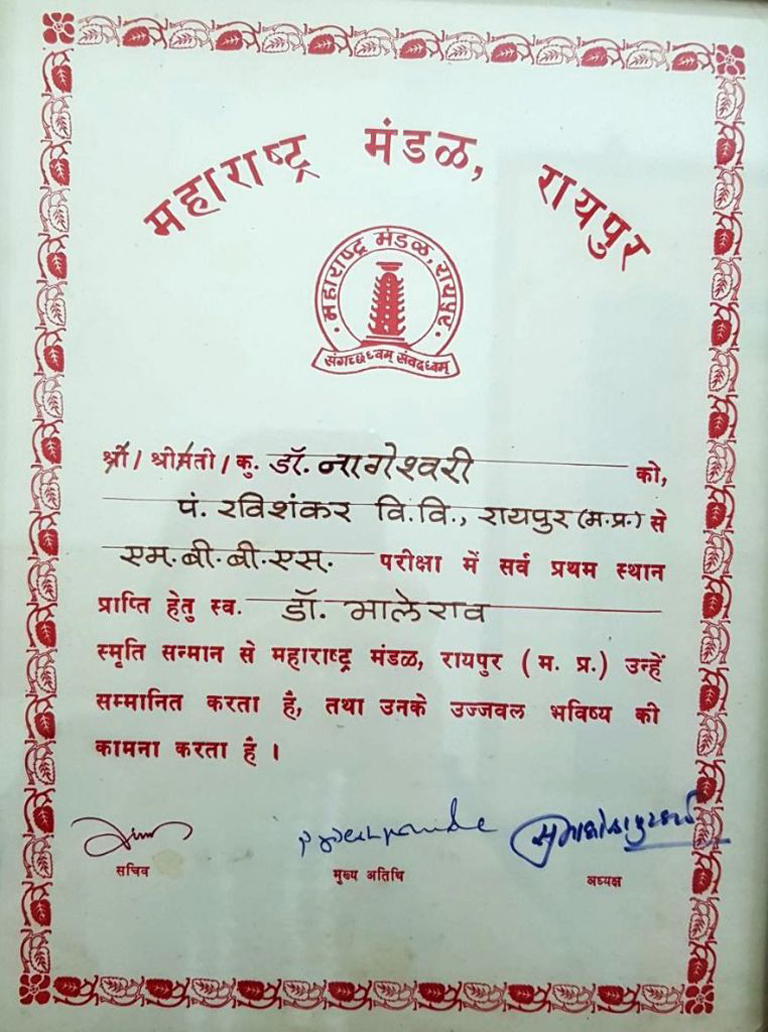 महाराष्ट्र मंडळ, रायपुर
महाराष्ट्र मंडळ, रायपुर.
संगच्छध्वम् संवदध्वम्
श्री / श्रीमती / कु. डॉ. नागेश्वरी को,
पं. रविशंकर वि.वि., रायपुर (म.प्र.) से
एम.बी.बी.एस. परीक्षा में सर्व प्रथम स्थान
प्राप्ति हेतु स्व. डॉ. भालेराव
स्मृति सन्मान से महाराष्ट्र मंडळ, रायपुर ( म. प्र. ) उन्हें
सम्मानित करता है, तथा उनके उज्जवल भविष्य की
कामना करता है ।
सचिव
मुख्य अतिथि
अध्यक्ष